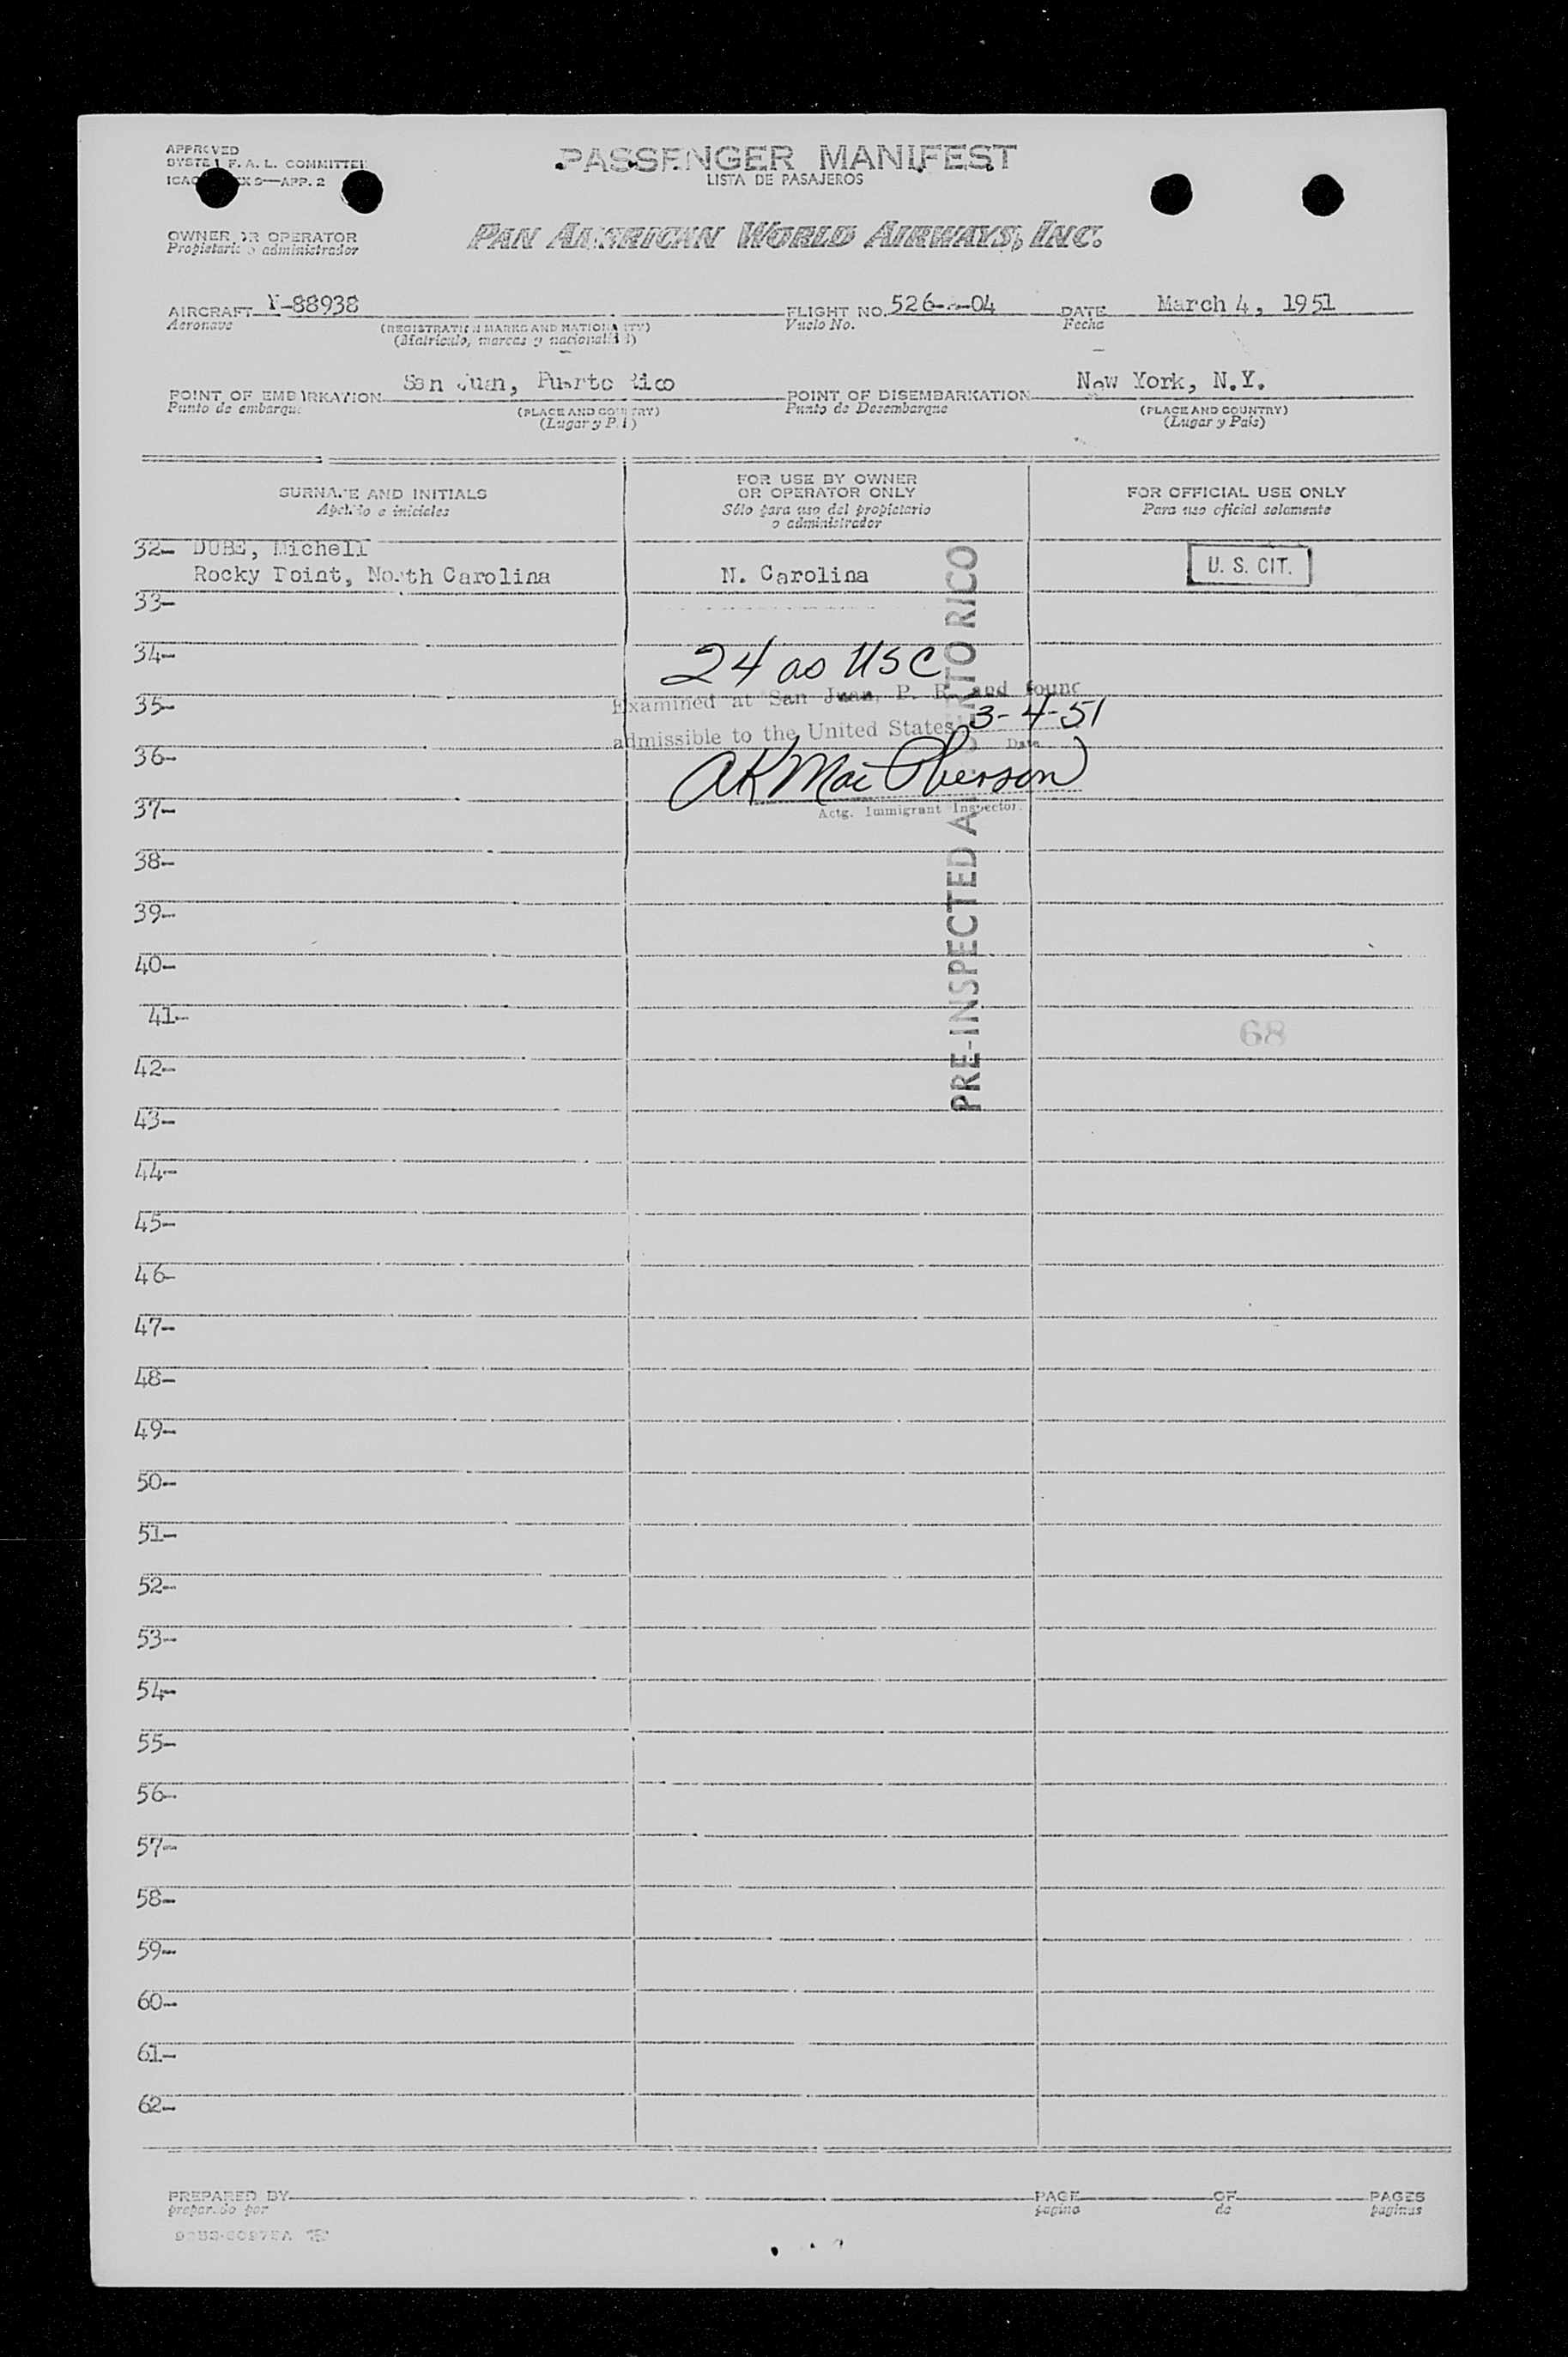 APPROVED
SYSTEM F. A. L. COMMITTEE
ICAO 9—APP. 2
PASSENGER MANIFEST
LISTA DE PASAJEROS
OWNER OR OPERATOR
Propietario o administrador
PAN AMERICAN WORLD AIRWAYS, INC.
AIRCRAFT N-88938 FLIGHT NO. 526-A-04 DATE March 4, 1951
Aeronave (REGISTRATION MARKS AND NATIONALITY) Vuelo No. Fecha
(Matrículo, marcas y nacionalidad)
POINT OF EMBARKATION San Juan, Puerto Rico POINT OF DISEMBARKATION New York, N.Y.
Punto de embarque (PLACE AND COUNTRY) Punto de Desembarque (PLACE AND COUNTRY)
(Lugar y País) (Lugar y País)
SURNAME AND INITIALS
Apellido e iniciales
FOR USE BY OWNER
OR OPERATOR ONLY
Sólo para uso del propietario
o administrador
FOR OFFICIAL USE ONLY
Para uso oficial solamente
32- DUBE, Michell
Rocky Point, North Carolina N. Carolina U. S. CIT.
33-
34-
24 as USC
35- Examined at San Juan, P. R. and found
admissible to the United States 3-4-51
36- Date
AK MacPherson
37- Actg. Immigrant Inspector
PRE-INSPECTED AT PUERTO RICO
38-
39-
40-
41-
68
42-
43-
44-
45-
46-
47-
48-
49-
50-
51-
52-
53-
54-
55-
56-
57-
58-
59-
60-
61-
62-
PREPARED BY PAGE OF PAGES
preparado por pagina de paginas